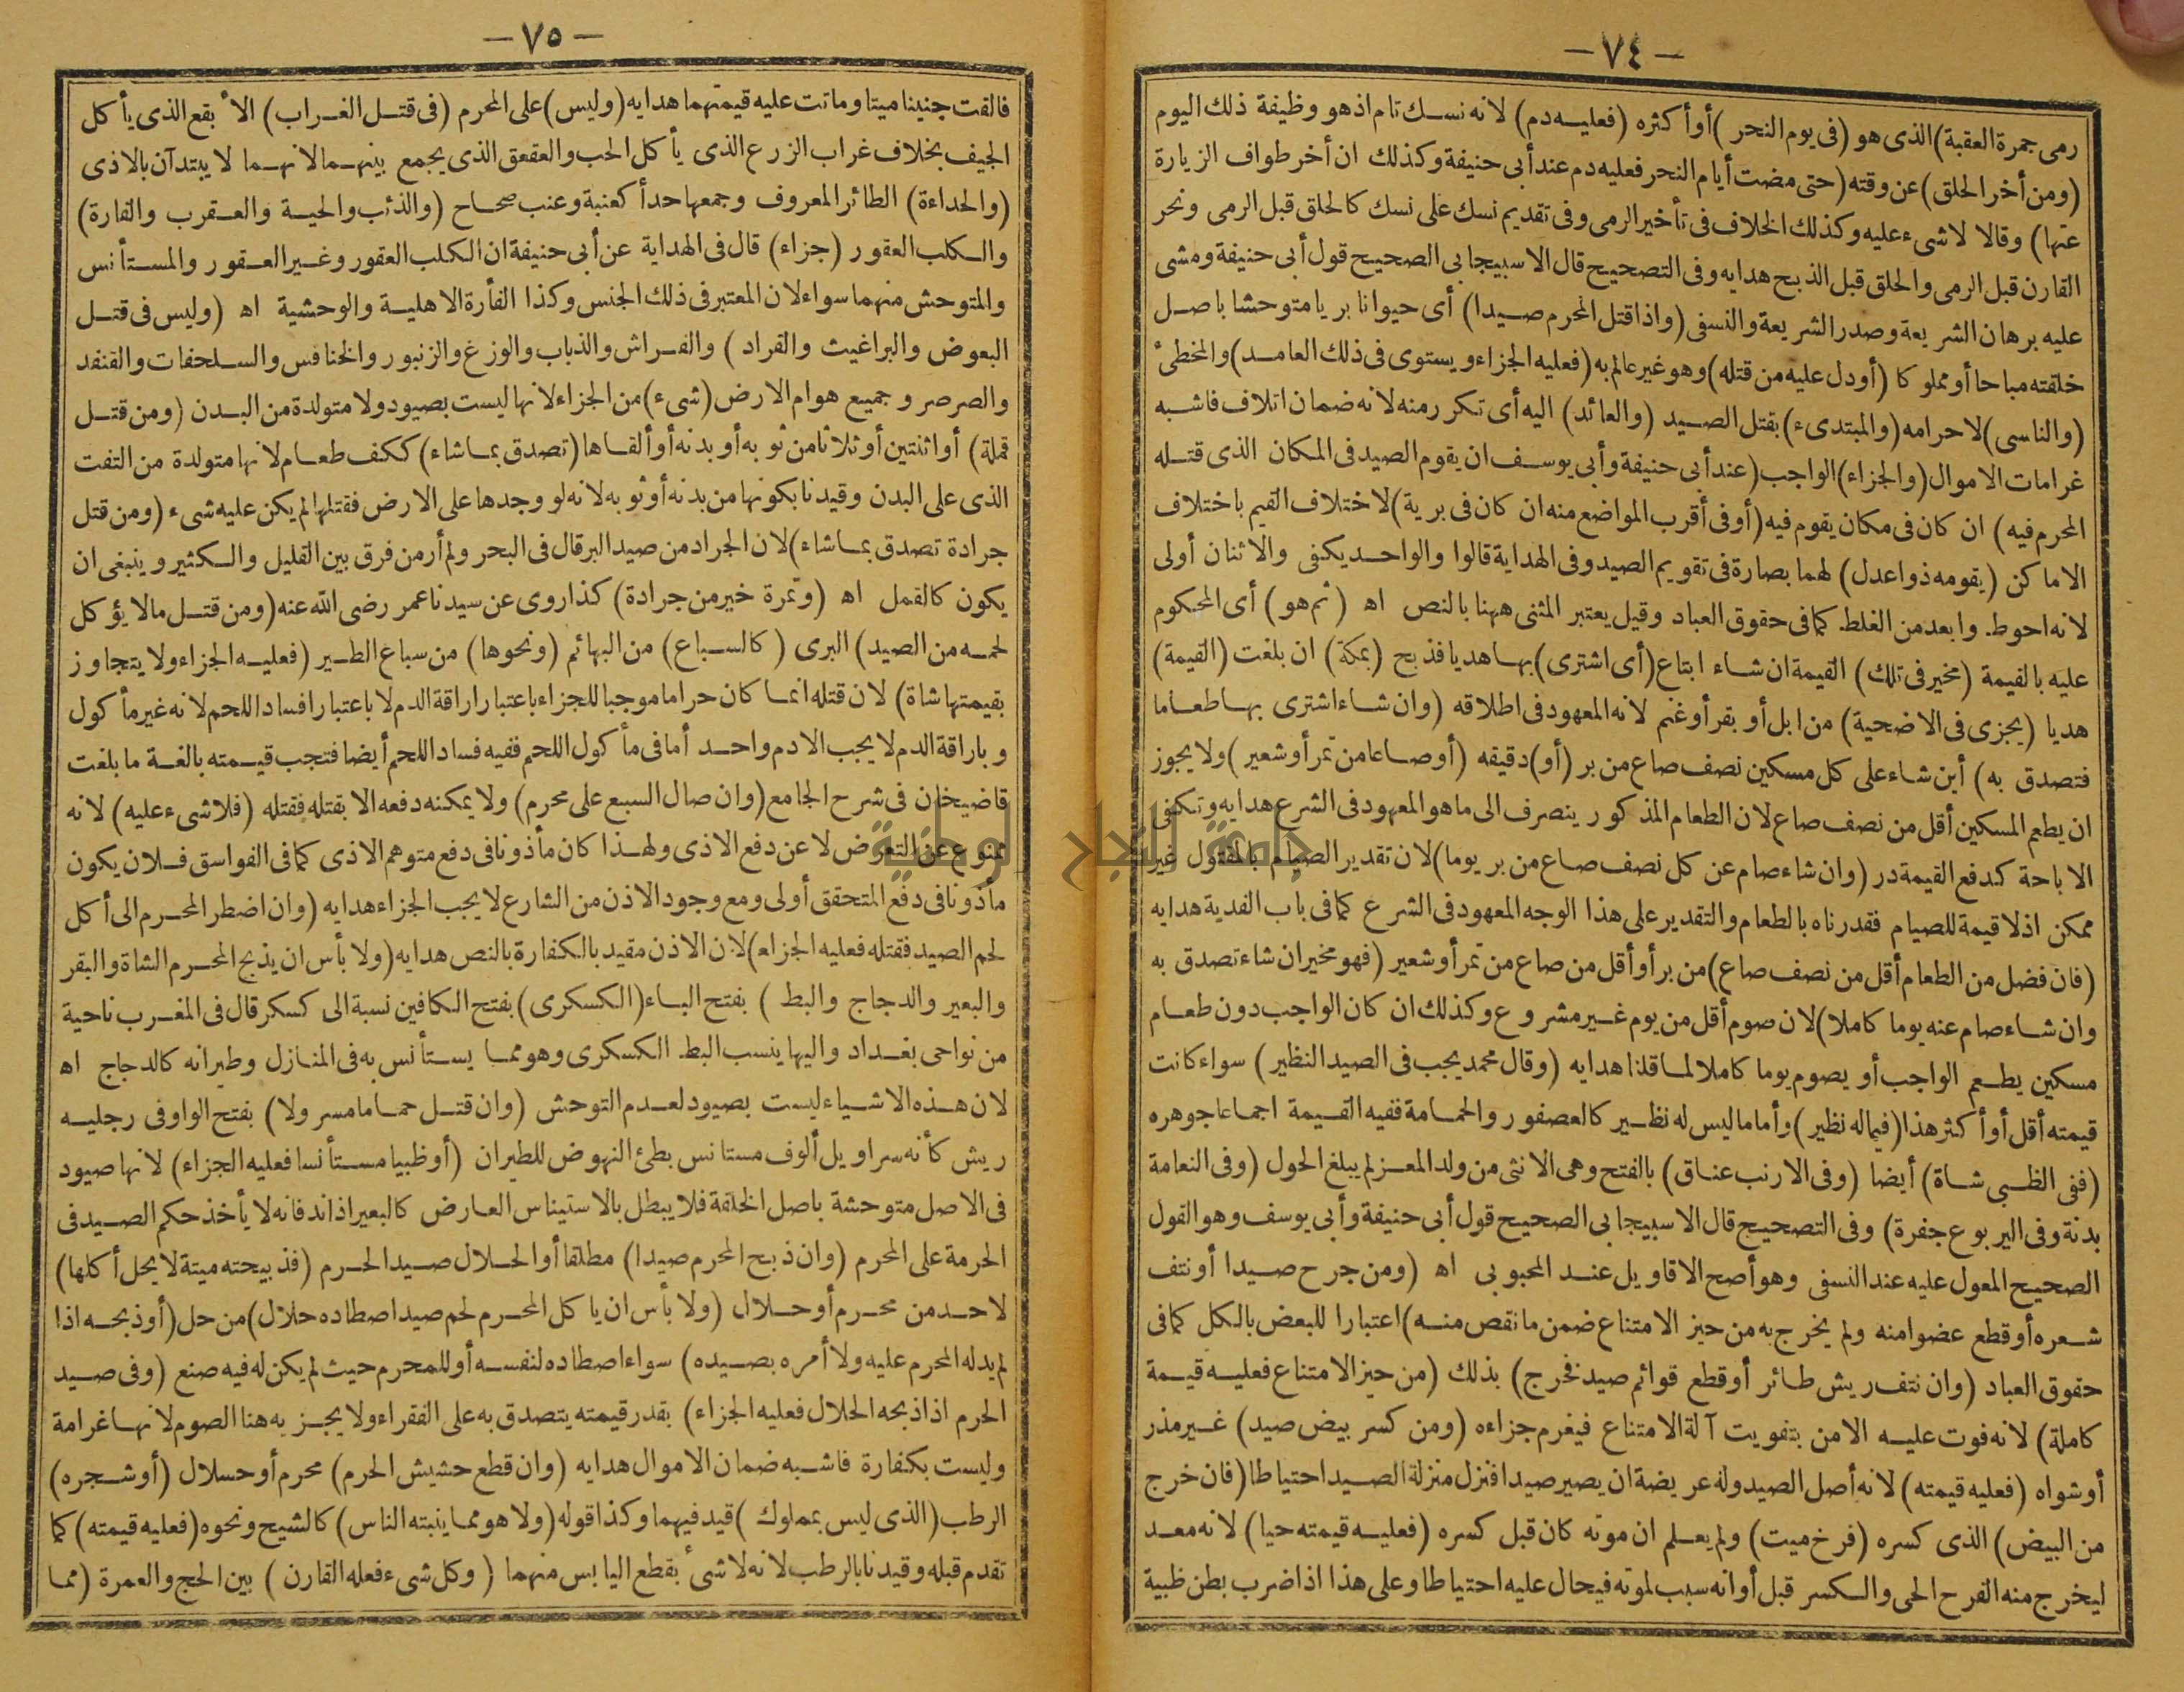 — ٧٤ —
رمى جمرة العقبة) الذى هو (فى يوم النحر) أو أكثره (فعليه دم) لانه نسك تام اذ هو وظيفة ذلك اليوم
(ومن أخر الحلق) عن وقته (حتى مضت أيام النحر فعليه دم عند أبى حنيفة وكذلك ان أخر طواف الزيارة
عنها) وقالا لا شىء عليه وكذلك الخلاف فى تأخير الرمى وفى تقديم نسك على نسك كالحلق قبل الرمى ونحر
القارن قبل الرمى والحلق قبل الذبح هدايه وفى التصحيح قال الاسبيجابى الصحيح قول أبى حنيفة ومشى
عليه برهان الشريعة وصدر الشريعة والنسفى (واذا قتل المحرم صيدا) أى حيوانا بريا متوحشا باصل
خلقته مباحا أو مملوكا (أو دل عليه من قتله) وهو غير عالم به (فعليه الجزاء ويستوى فى ذلك العامد) والمخطئ
(والناسى) لاحرامه (والمبتدىء) بقتل الصيد (والعائد) اليه أى تكرر منه لانه ضمان اتلاف فاشبه
غرامات الاموال (والجزاء) الواجب (عند أبى حنيفة وأبى يوسف ان يقوم الصيد فى المكان الذى قتله
المحرم فيه) ان كان فى مكان يقوم فيه (أو فى أقرب المواضع منه ان كان فى برية) لاختلاف القيم باختلاف
الاماكن (يقومه ذوا عدل) لهما بصارة فى تقويم الصيد وفى الهداية قالوا والواحد يكفى والاثنان أولى
لانه احوط. وابعد من الغلط. كما فى حقوق العباد وقيل يعتبر المثنى ههنا بالنص اه (ثم هو) أى المحكوم
عليه بالقيمة (مخير فى تلك) القيمة ان شاء ابتاع (أى اشترى) بها هديا فذبح (بمكة) ان بلغت (القيمة)
هديا (يجزى فى الاضحية) من ابل أو بقر أو غنم لانه المعهود فى اطلاقه (وان شاء اشترى بها طعاما
فتصدق به) أين شاء على كل مسكين نصف صاع من بر (أو) دقيقه (أو صاعا من تمر أو شعير) ولا يجوز
ان يطعم المسكين أقل من نصف صاع لان الطعام المذكور ينصرف الى ما هو المعهود فى الشرع هدايه وتكفى
الاباحة كدفع القيمة در (وان شاء صام عن كل نصف صاع من بر يوما) لان تقدير الصيام بالمقتول غير
ممكن اذ لا قيمة للصيام فقدرناه بالطعام والتقدير على هذا الوجه المعهود فى الشرع كما فى باب الفدية هدايه
(فان فضل من الطعام أقل من نصف صاع) من بر أو أقل من صاع من تمر أو شعير (فهو مخير ان شاء تصدق به
وان شاء صام عنه يوما كاملا) لان صوم أقل من يوم غير مشروع وكذلك ان كان الواجب دون طعام
مسكين يطعم الواجب أو يصوم يوما كاملا لما قلنا هدايه (وقال محمد يجب فى الصيد النظير) سواء كانت
قيمته أقل أو أكثر هذا (فيما له نظير) وأما ما ليس له نظير كالعصفور والحمامة ففيه القيمة اجماعا جوهره
(ففى الظبى شاة) أيضا (وفى الارنب عناق) بالفتح وهى الانثى من ولد المعز لم يبلغ الحول (وفى النعامة
بدنة وفى اليربوع جفرة) وفى التصحيح قال الاسبيجابى الصحيح قول أبى حنيفة وأبى يوسف وهو القول
الصحيح المعول عليه عند النسفى وهو أصح الاقاويل عند المحبوبى اه (ومن جرح صيدا أو نتف
شعره أو قطع عضوا منه ولم يخرج به من حيز الامتناع ضمن ما نقص منه) اعتبارا للبعض بالكل كما فى
حقوق العباد (وان نتف ريش طائر أو قطع قوائم صيد فخرج) بذلك (من حيز الامتناع فعليه قيمة
كاملة) لانه فوت عليه الامن بتفويت آلة الامتناع فيغرم جزاءه (ومن كسر بيض صيد) غير مذر
أو شواه (فعليه قيمته) لانه أصل الصيد وله عريضة ان يصير صيدا فنزل منزلة الصيد احتياطا (فان خرج
من البيض) الذى كسره (فرخ ميت) ولم يعلم ان موته كان قبل كسره (فعليه قيمته حيا) لانه معد
ليخرج منه الفرخ الحى والكسر قبل أوانه سبب لموته فيحال عليه احتياطا وعلى هذا اذا ضرب بطن ظبية
— ٧٥ —
فالقت جنينا ميتا وماتت عليه قيمتهما هدايه (وليس) على المحرم (فى قتل الغراب) الأبقع الذى يأكل
الجيف بخلاف غراب الزرع الذى يأكل الحب والعقعق الذى يجمع بينهما لانهما لا يبتدآن بالاذى
(والحداءة) الطائر المعروف وجمعها حدأ كعنبة وعنب صحاح (والذئب والحية والعقرب والفارة)
والكلب العقور (جزاء) قال فى الهداية عن أبى حنيفة ان الكلب العقور وغير العقور والمستأنس
والمتوحش منهما سواء لان المعتبر فى ذلك الجنس وكذا الفأرة الاهلية والوحشية اه (وليس فى قتل
البعوض والبراغيث والقراد) والفراش والذباب والوزغ والزنبور والخنافس والسلحفات والقنفد
والصرصر وجميع هوام الارض (شىء) من الجزاء لانها ليست بصيود ولا متولدة من البدن (ومن قتل
قملة) أو اثنتين أو ثلاثا من ثوبه أو بدنه أو ألقاها (تصدق بما شاء) ككف طعام لانها متولدة من التفت
الذى على البدن وقيدنا بكونها من بدنه أو ثوبه لانه لو وجدها على الارض فقتلها لم يكن عليه شىء (ومن قتل
جرادة تصدق بما شاء) لان الجراد من صيد البر قال فى البحر ولم أر من فرق بين القليل والكثير وينبغى ان
يكون كالقمل اه (وتمرة خير من جرادة) كذا روى عن سيدنا عمر رضى الله عنه (ومن قتل مالا يؤكل
لحمه من الصيد) البرى (كالسباع) من البهائم (ونحوها) من سباع الطير (فعليه الجزاء ولا يتجاوز
بقيمتها شاة) لان قتله انما كان حراما موجبا للجزاء باعتبار اراقة الدم لا باعتبار افساد اللحم لانه غير مأكول
وباراقة الدم لا يجب الا دم واحد أما فى مأكول اللحم ففيه فساد اللحم أيضا فتجب قيمته بالغة ما بلغت
قاضيخان فى شرح الجامع (وان صال السبع على محرم) ولا يمكنه دفعه الا بقتله فقتله (فلا شىء عليه) لانه
ممنوع عن التعرض لا عن دفع الاذى ولهذا كان مأذونا فى دفع متوهم الاذى كما فى الفواسق فلان يكون
مأذونا فى دفع المتحقق أولى ومع وجود الاذن من الشارع لا يجب الجزاء هدايه (وان اضطر المحرم الى أكل
لحم الصيد فقتله فعليه الجزاء) لان الاذن مقيد بالكفارة بالنص هدايه (ولا بأس ان يذبح المحرم الشاة والبقر
والبعير والدجاج والبط) بفتح الباء (الكسكرى) بفتح الكافين نسبة الى كسكر قال فى المغرب ناحية
من نواحى بغداد واليها ينسب البط. الكسكرى وهو مما يستأنس به فى المنازل وطيرانه كالدجاج اه
لان هذه الاشياء ليست بصيود لعدم التوحش (وان قتل حماما مسرولا) بفتح الواو فى رجليه
ريش كأنه سراويل ألوف مستانس بطئ النهوض للطيران (أو ظبيا مستأنسا فعليه الجزاء) لانها صيود
فى الاصل متوحشة باصل الخلقة فلا يبطل بالاستيناس العارض كالبعير اذا ند فانه لا يأخذ حكم الصيد فى
الحرمة على المحرم (وان ذبح المحرم صيدا) مطلقا أو الحلال صيد الحرم (فذبيحته ميتة لا يحل أكلها)
لاحد من محرم أو حلال (ولا بأس ان ياكل المحرم لحم صيد اصطاده حلال) من حل (أو ذبحه اذا
لم يدله المحرم عليه ولا أمره بصيده) سواء اصطاده لنفسه أو للمحرم حيث لم يكن له فيه صنع (وفى صيد
الحرم اذا ذبحه الحلال فعليه الجزاء) بقدر قيمته يتصدق به على الفقراء ولا يجز به هنا الصوم لانها غرامة
وليست بكفارة فاشبه ضمان الاموال هدايه (وان قطع حشيش الحرم) محرم أو حلال (أو شجره)
الرطب (الذى ليس بمملوك) قيد فيهما وكذا قوله (ولا هو مما ينبته الناس) كالشيح ونحوه (فعليه قيمته) كما
تقدم قبله وقيدنا بالرطب لانه لا شئ بقطع اليابس منهما (وكل شىء فعله القارن) بين الحج والعمرة (مما
جامعة النجاح الوطنية